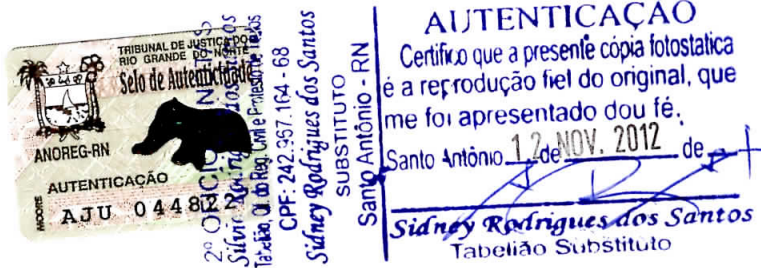 TRIBUNAL DE JUSTIÇA DO
RIO GRANDE DO NORTE
Selo de Autenticidade
ANOREG-RN
AUTENTICAÇÃO
MOORE
AJU 044822
2º OFÍCIO DE NOTAS
Silvio Rodrigues dos Santos
Tabelião, Of. do Reg. Civil e Protesto de Títulos
CPF: 242.957.164-68
Sidney Rodrigues dos Santos
SUBSTITUTO
Santo Antônio - RN
AUTENTICAÇÃO
Certifico que a presente cópia fotostatica
é a reprodução fiel do original, que
me foi apresentado dou fé.
Santo Antônio 12 de NOV. 2012 de
Sidney Rodrigues dos Santos
Tabelião Substituto